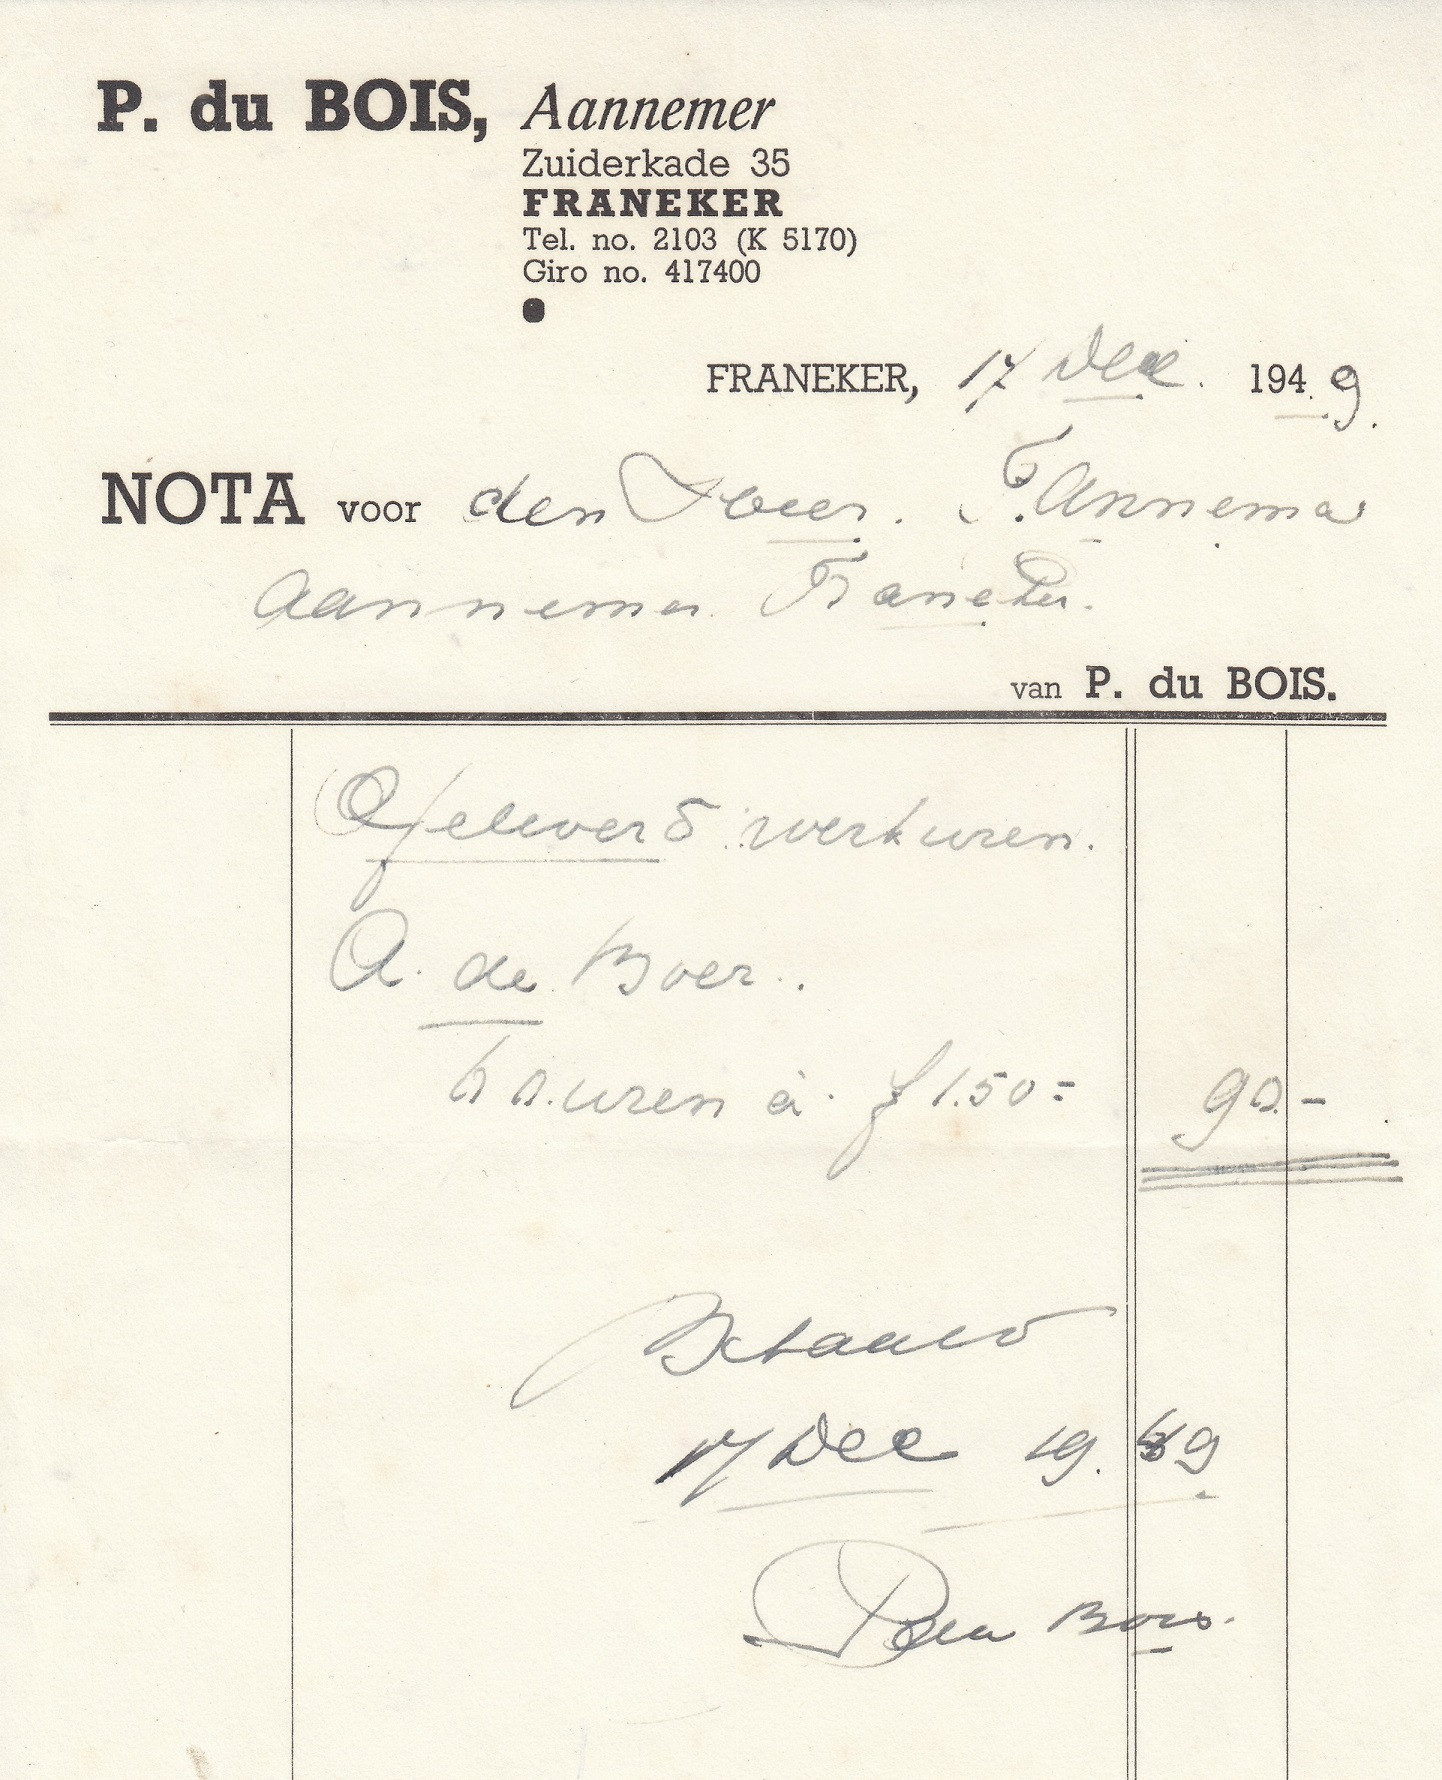 P. du BOIS, Aannemer
Zuiderkade 35
FRANEKER
Tel. no. 2103 (K 5170)
Giro no. 417400
FRANEKER, 17 Dec. 1949.
NOTA voor den Heer. T. Annema
Aannemer. Franeker.
van P. du BOIS.
Afgeleverd werkuren.
A. de Boer.
60. uren à. f 1.50 =
90.-
Betaald
17 Dec 19.49
P du Bois.